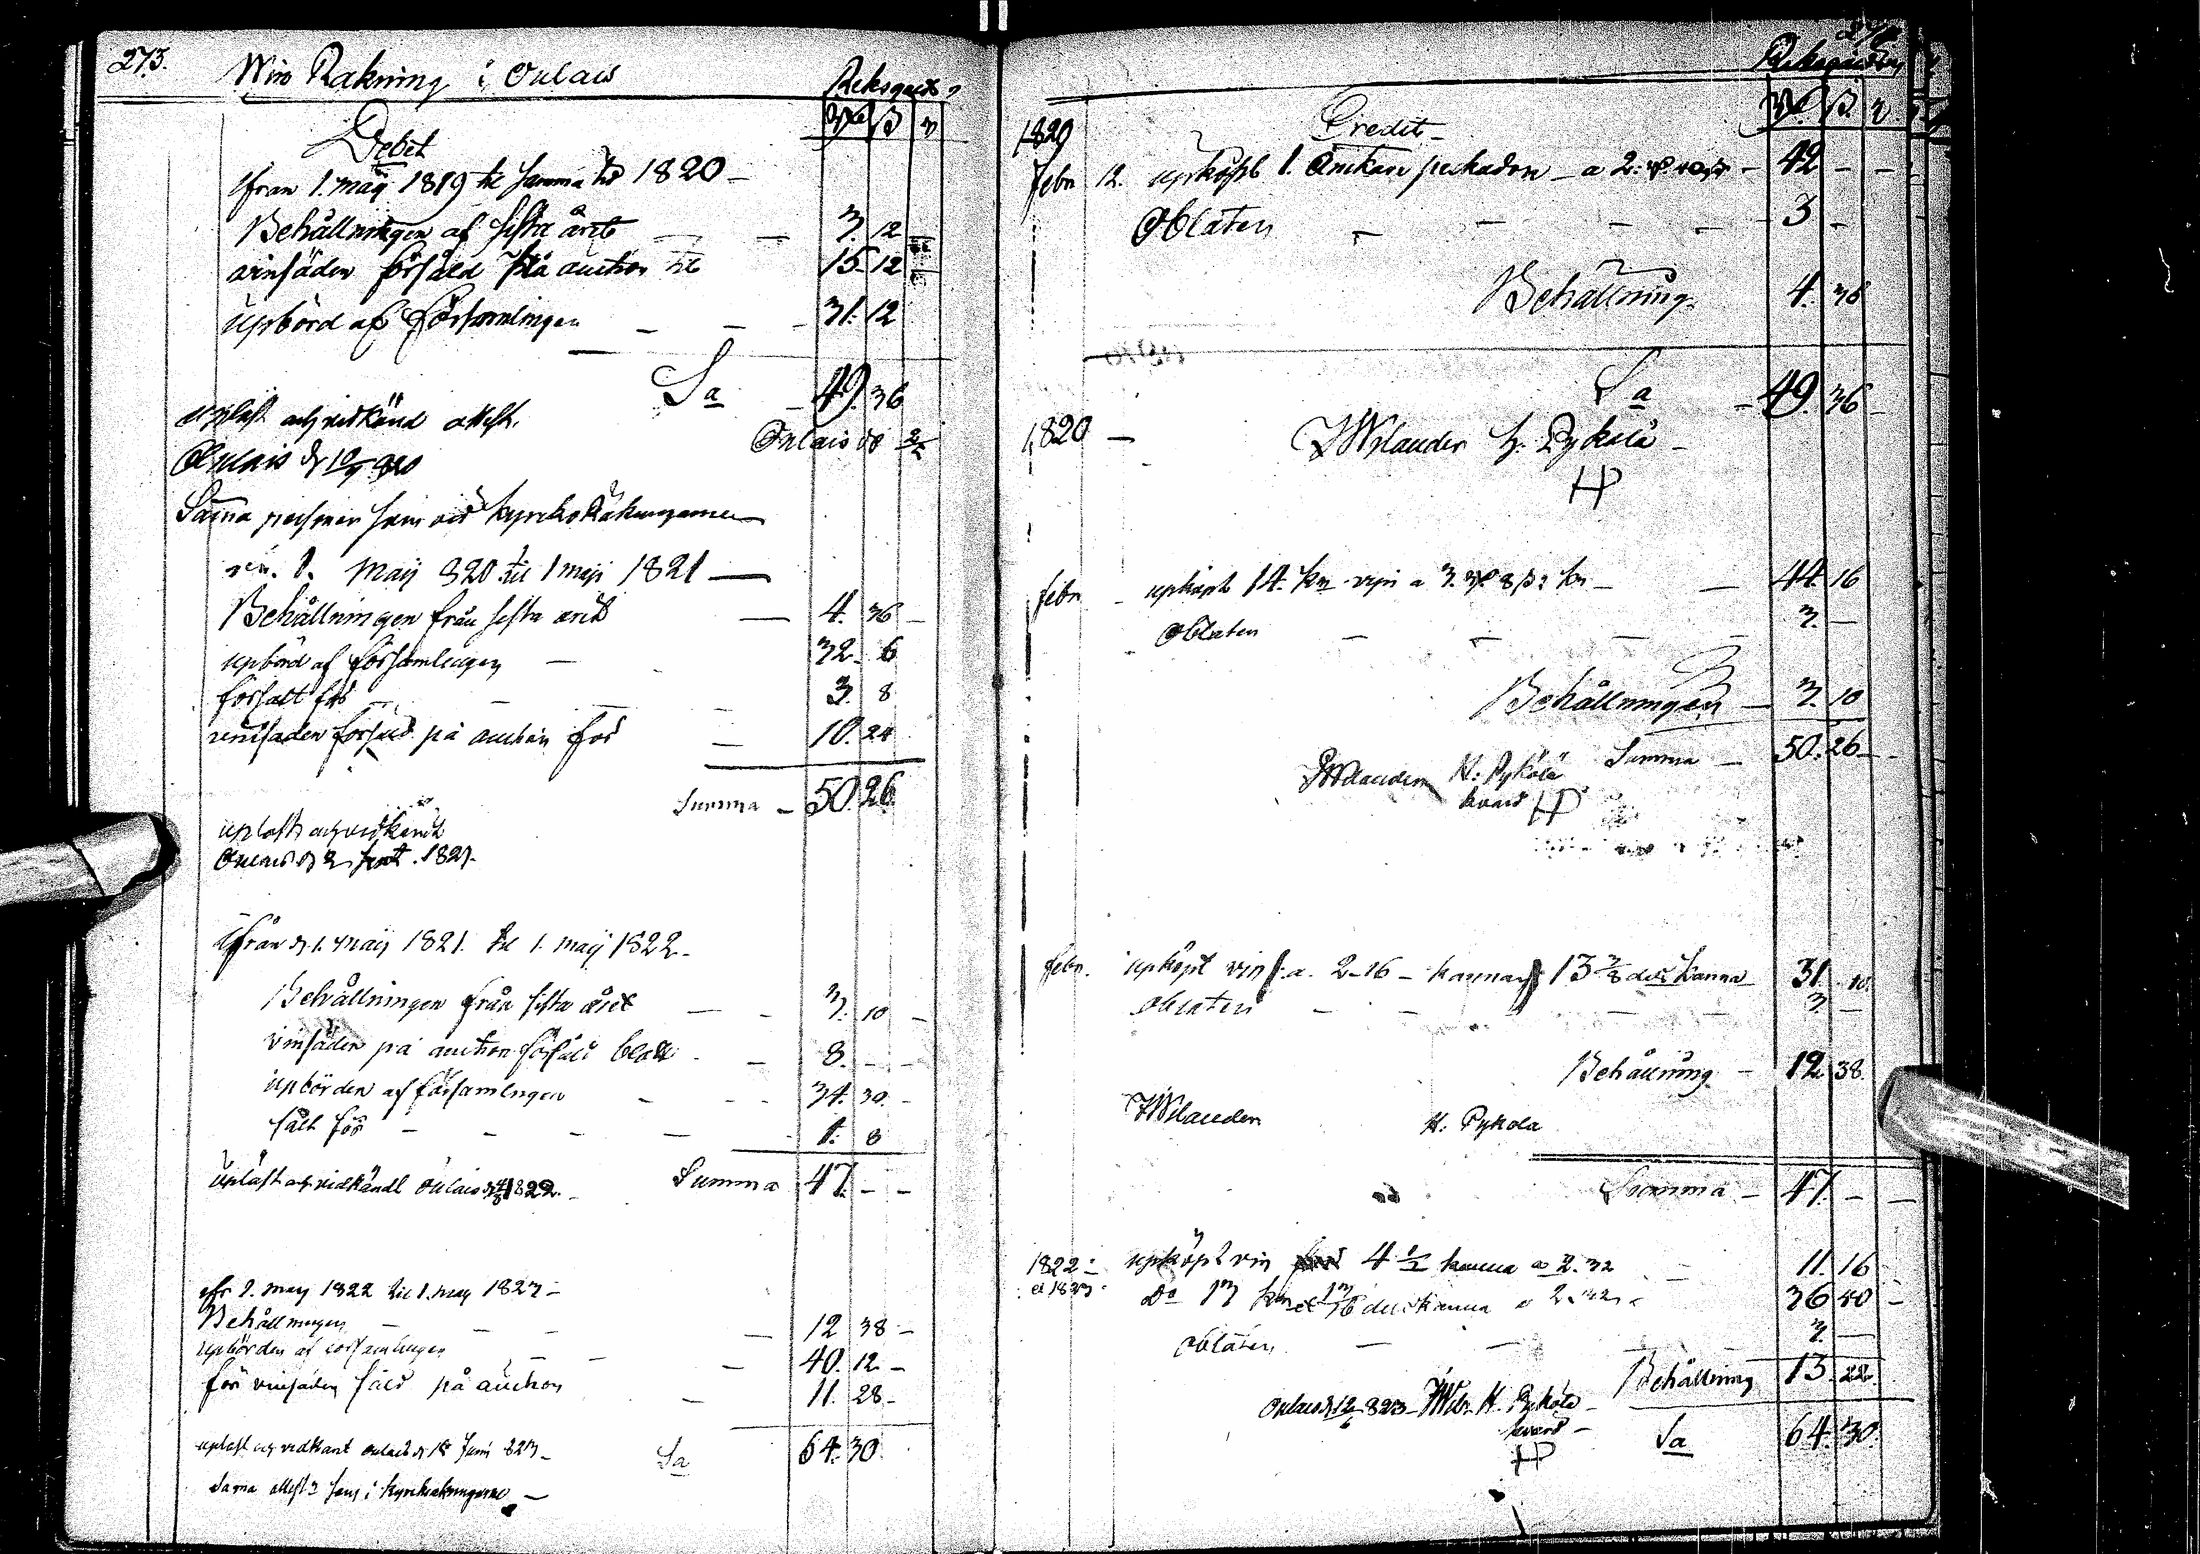 273.
Win Räkning i Oulais
Reksgeds
Debet
ifrån 1. maij 1819 til samma tid 1820 —
Behållningen af sista året — — 3. 12
vinsäden försåld på auction til 15. 12
upbörd af Församlingen — — — 31. 12
Sa — 49. 36
upläst och vidkänd attest.
Oulais
Oulais d
Samma personer som vid Kyrko Räkningarne
1. Maij 820 til 1 maji 1821 —
Behållningen från sista året — 4. 36 —
upbörd af församlingen — 32. 6
försålt för — — — 3. 8
vinsäden försåld på auction för — 10. 24
Summa — 50. 26
upläst och vidkändt
Oulais d 2 1821.
ifrån d 1. maij 1821. til 1. maij 1822 —
Behållningen från sista året — — 3. 10 —
vinsäden på auction försåld — 8. — —
upbörden af församlingen — — 34. 30. —
sålt för — — — — 1. 8
upläst och vidkändt Oulais 1822. — Summa 47. — —
ifr 1. may 1822 til 1. may 1823 —
Behållningen — — — — 12 38 —
upbörden af församlingen — — — 40. 12 —
för vinsäden såld på auction — 11. 28 —
upläst och vidkänt Oulais d Juni 823 — Sa 64. 30
samma attest: som i Kyrkräkningarne —
Credit —
1820
febr 12. upköpt 1. pechadon — a 2: — 42 — —
Oblaten — — — — 3 —
Behållning. 4. 36
Sa — 49. 36 —
1820 — Wilander H. Pykölä —
HP
febr — upköpt 14. kn vin a 3. 8 — — 44. 16
Oblaten — — — 3. —
Behållningen — 3. 10
Summa — 50. 26 —
Wilander H: Pykölä
HP
febr. upköpt vin a. 2-16 — kannan 13 3/8 dels kanna 31. 10.
Oblaten — — — — 3 —
Behållning — 12. 38.
Wilander H. Pykölä
Summa — 47. — —
1822 — upköpt vin 4 1/2 kanna a 2. 32 — 11. 16
et 1823 Do 13 kn dels kanna a 2. 32 36 40 —
Oblaten — — 3. —
Behållning 13. 22.
Oulais d 12/6 823 — H. Pykölä —
HP
Sa 64. 30.